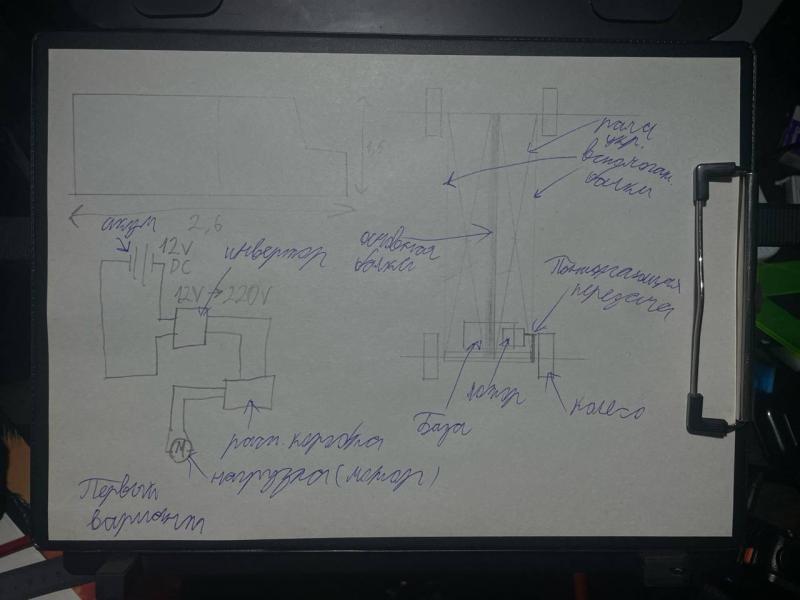 1,5
2,6
акум
12V
DC
инвертор
12V → 220V
рама
укр.
вспомоган.
балки
основная
балка
Понижающая
передача
База
мотор
колесо
нагрузка (мотор)
М
Первый
вариант